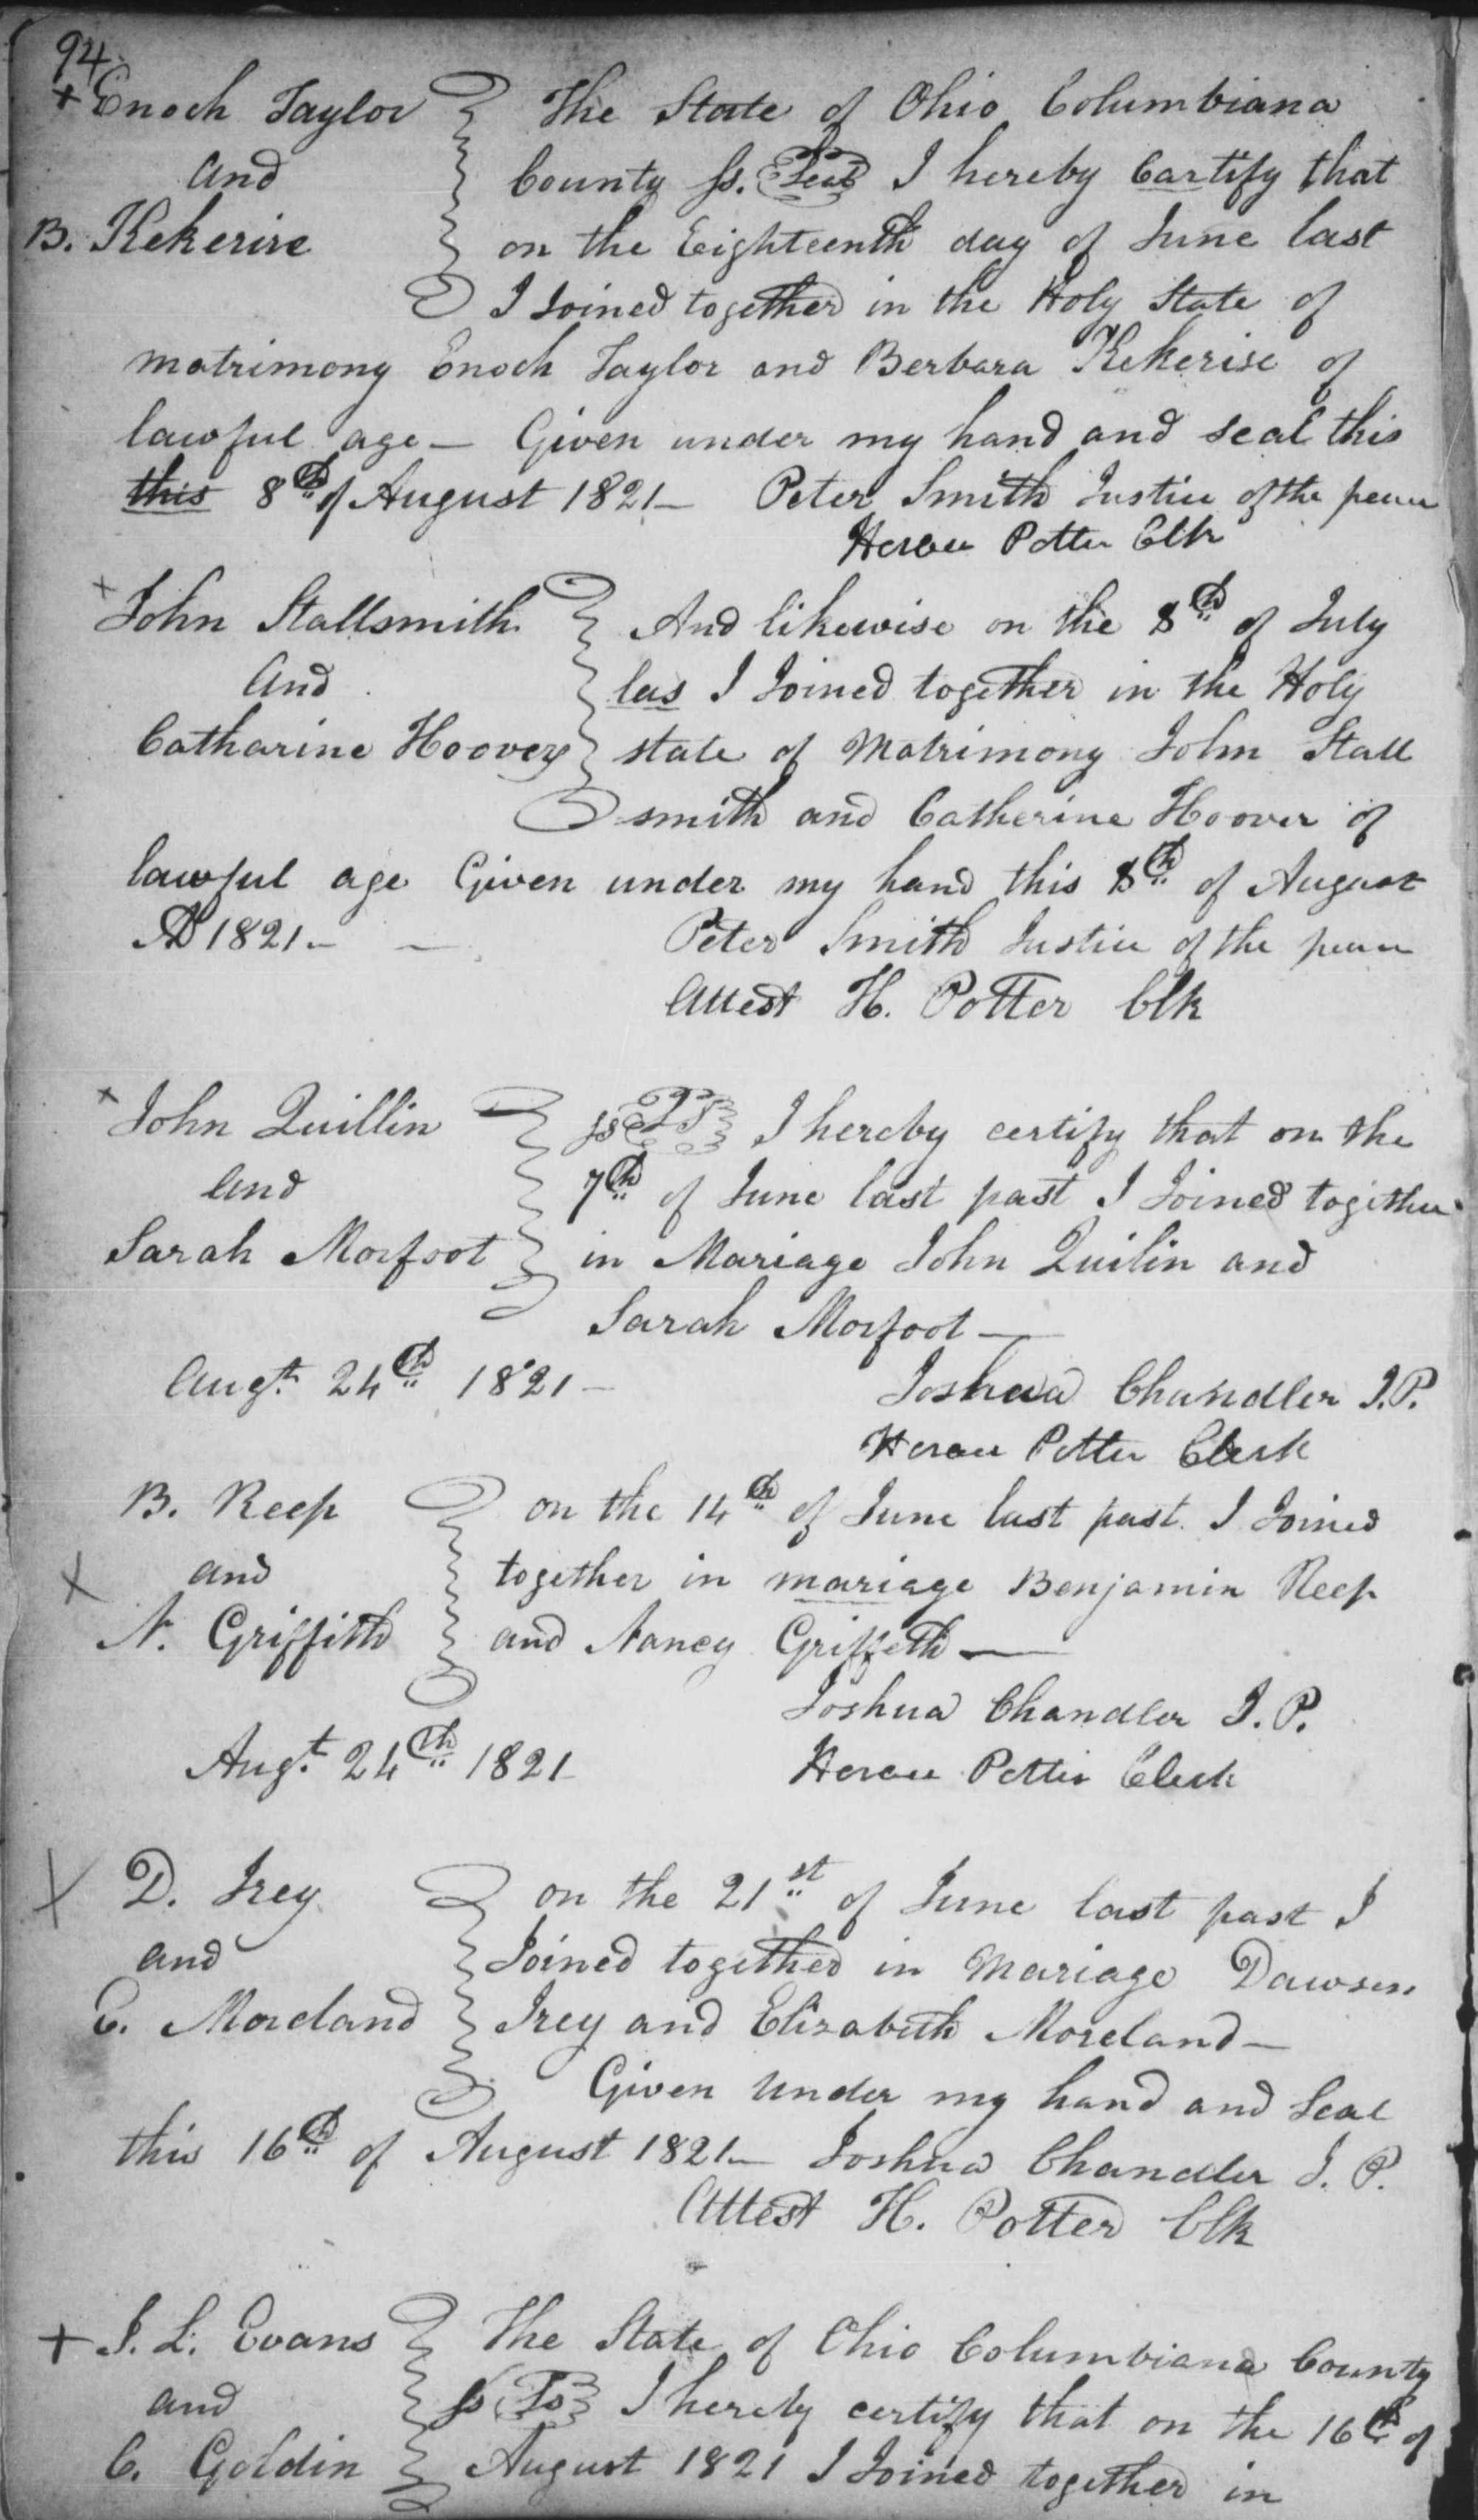 94
+ Enoch Taylor } The State of Ohio Columbiana
and County ss. Seal I hereby Cartify that
B. Kekerise on the Eighteenth day of June last
I Joined together in the Holy State of
matrimony Enoch Taylor and Berbara Kekerise of
lawful age — Given under my hand and seal this
this 8th of August 1821 — Peter Smith Justice of the peace
Horace Potter Clk
+ John Stallsmith } And likewise on the 8th of July
And las I Joined together in the Holy
Catharine Hoover state of Matrimony John Stall
smith and Catherine Hoover of
lawful age Given under my hand this 8th of August
AD 1821 — — Peter Smith Justice of the peace
Attest H. Potter Clk
+ John Quillin } ss LS I hereby certify that on the
and 7th of June last past I Joined together
Sarah Morfoot in Mariage John Quilin and
Sarah Morfoot —
Augt 24th 1821 — Joshua Chandler J.P.
Horace Potter Clerk
B. Reep } on the 14th of June last past. I Joined
+ and together in mariage Benjamin Reep
N. Griffith and Nancy Griffeth —
Joshua Chandler J. P.
Augt. 24th 1821 Horace Potter Clerk
+ D. Irey } on the 21st of June last past I
and Joined together in Mariage Dawson
E. Moreland Irey and Elizabeth Moreland —
Given under my hand and Seal
this 16th of August 1821 — Joshua Chandler J. P.
Attest H. Potter Clk
+ J. L. Evans } The State of Ohio Columbiana County
and ss I hereby certify that on the 16th of
C. Goldin August 1821 I Joined together in